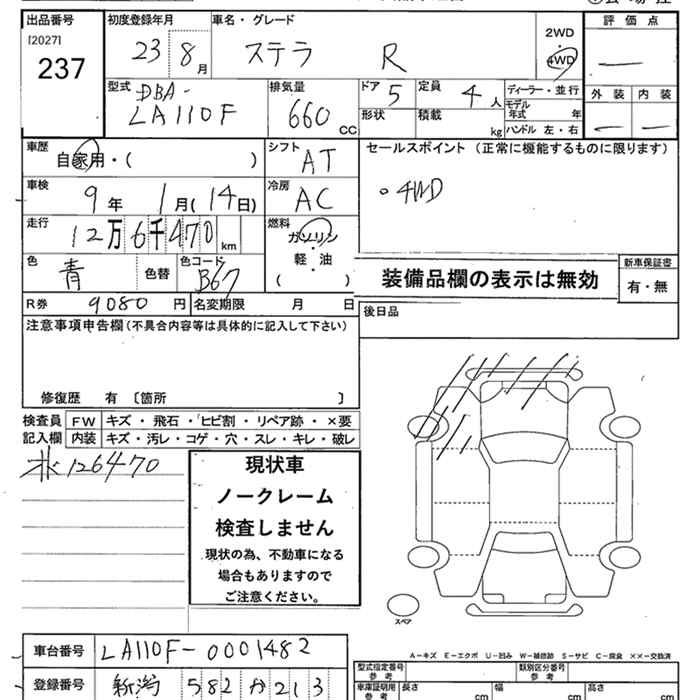 出品番号 初度登録年月 車名・グレード 2WD 評価点
[2027] 237 23 8月 ステラ R 4WD —
型式 DBA- LA110F 排気量 660 CC ドア 5 定員 4人 ディーラー・並行 外装 内装
形状 積載 kg モデル年式 年 — —
ハンドル 左・右
車歴 自家用・( ) シフト AT セールスポイント (正常に機能するものに限ります)
車検 9年 1月(14日) 冷房 AC 。4WD
走行 12万6千470km 燃料 ガソリン・軽・油 ( )
色 青 色替 色コード B67 装備品欄の表示は無効 新車保証書 有・無
R券 9080円 名変期限 月 日 後日品
注意事項申告欄(不具合内容等は具体的に記入して下さい)
修復歴 有 〔箇所 〕
検査員 FW キズ・飛石・ヒビ割・リペア跡・×要
記入欄 内装 キズ・汚レ・コゲ・穴・スレ・キレ・破レ
126470
現状車
ノークレーム
検査しません
現状の為、不動車になる
場合もありますので
ご注意ください。
スペア
A-キズ E-エクボ U-凹み W-補修跡 S-サビ C-腐食 ××-交換済
車台番号 LA110F-0001482
型式指定番号 参考 類別区分番号 参考
登録番号 新潟 582 か 213
車庫証明用 参考 長さ cm 幅 cm 高さ cm